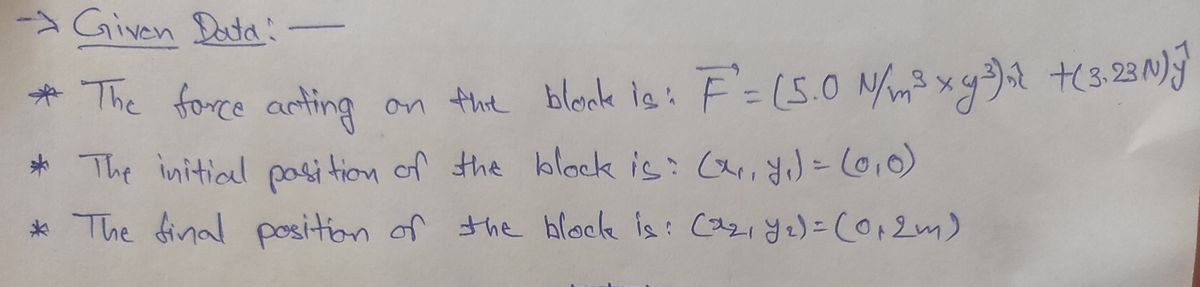 → Given Data: —
* The force acting on the block is: F⃗ = (5.0 N/m³ × y³) x̂ + (3.23 N) ŷ
* The initial position of the block is: (x₁, y₁) = (0,0)
* The final position of the block is: (x₂, y₂) = (0, 2m)